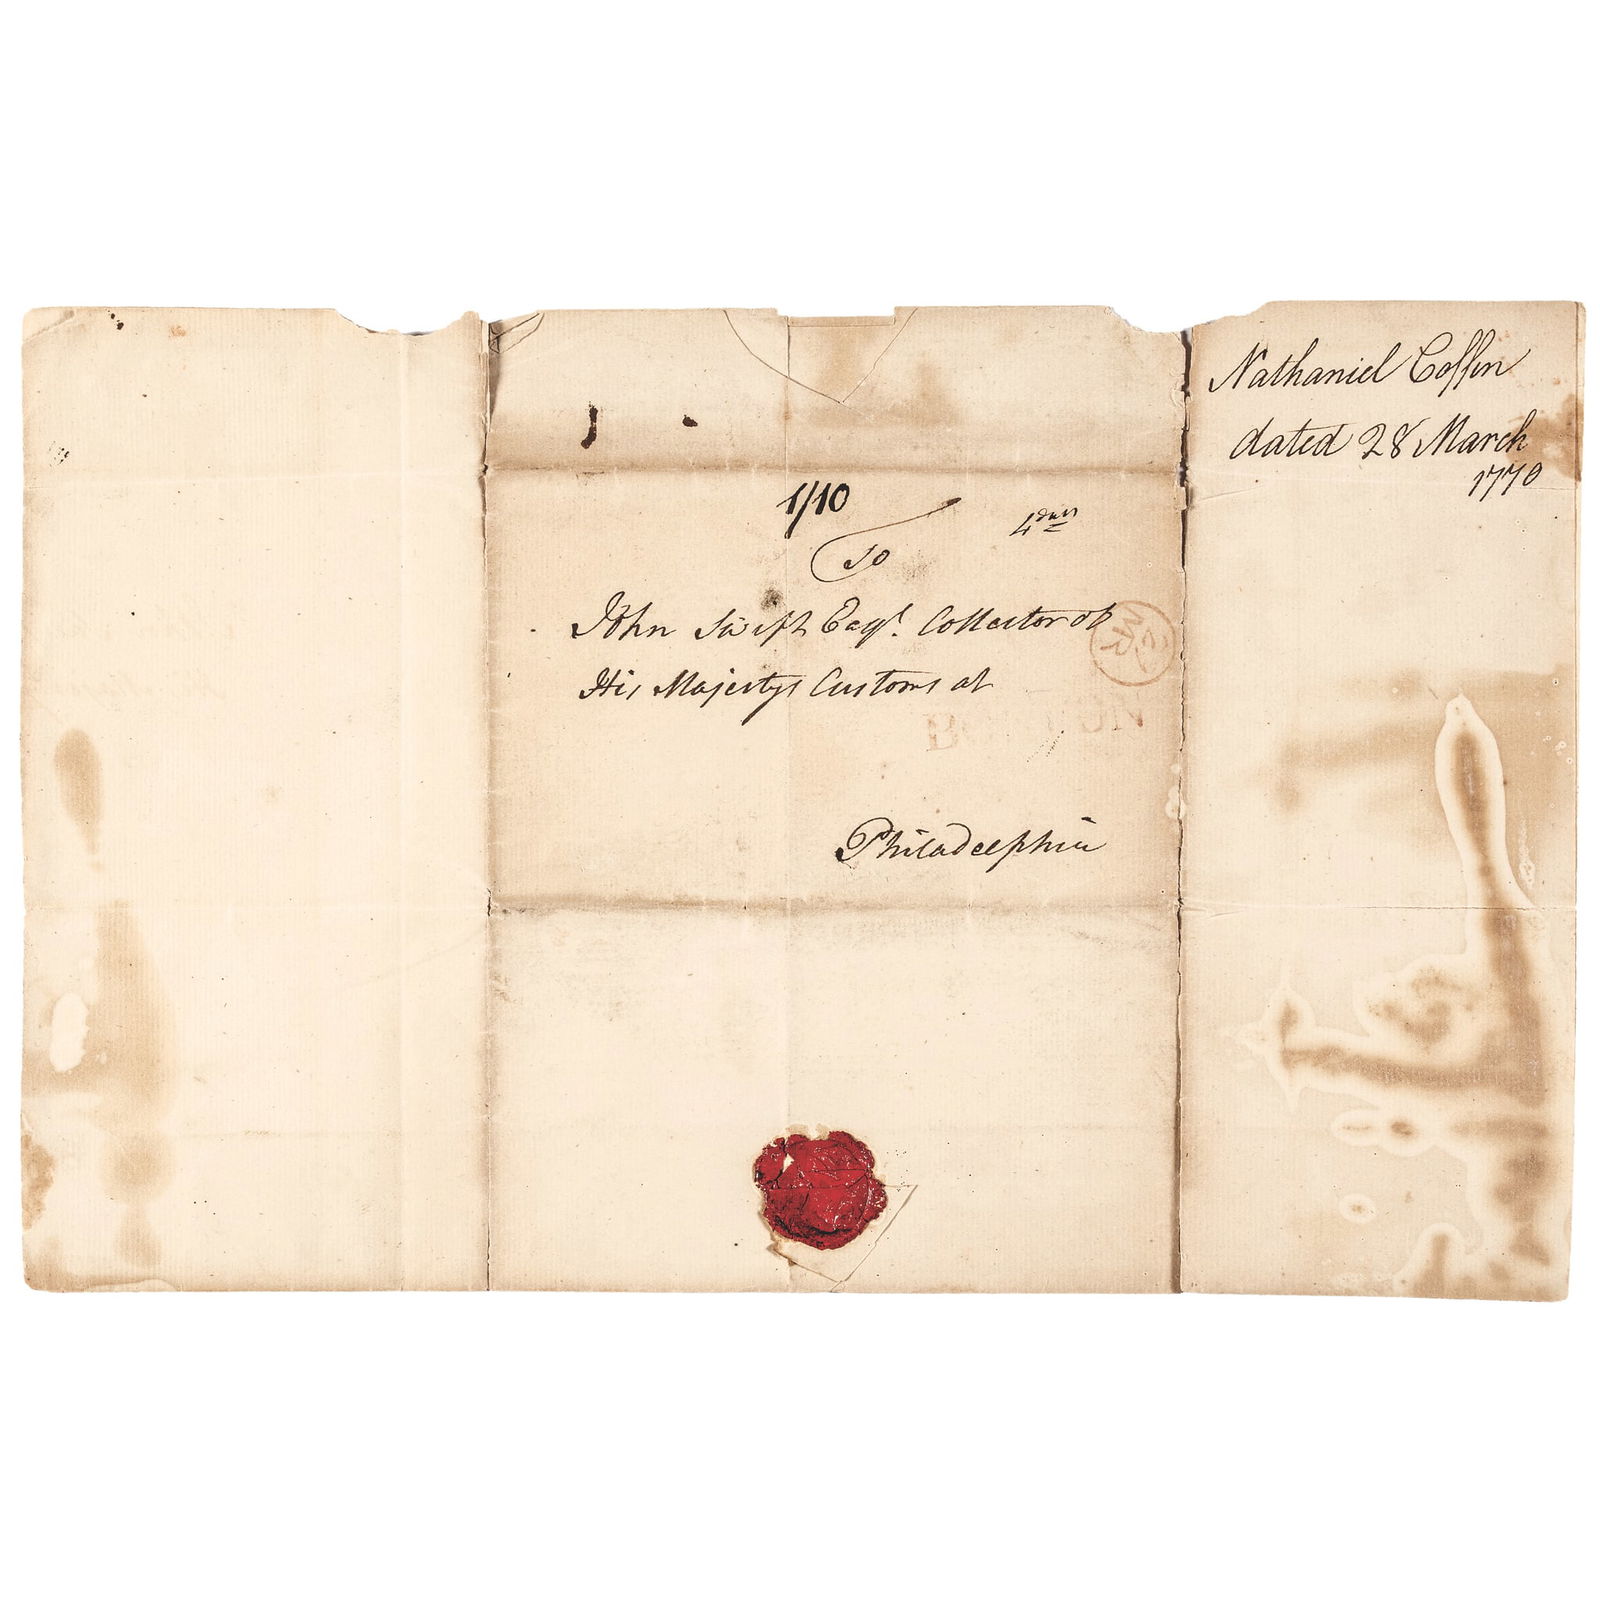 Nathaniel Coffin
dated 28 March
1770
1/10
4
10
John Swift Esqr. Collector of
His Majestys Customs at
Philadelphia